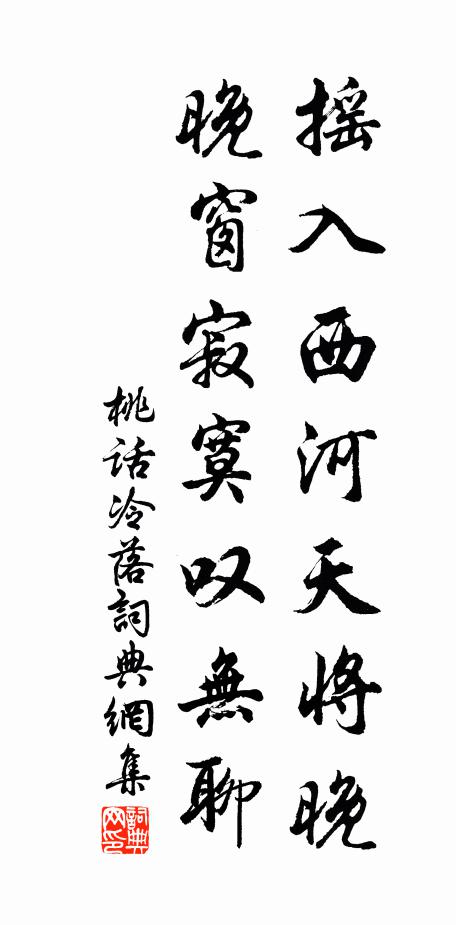 摇入西河天将晚
晚窗寂寞叹無聊
桃话冷落詞典網集
詞典网印